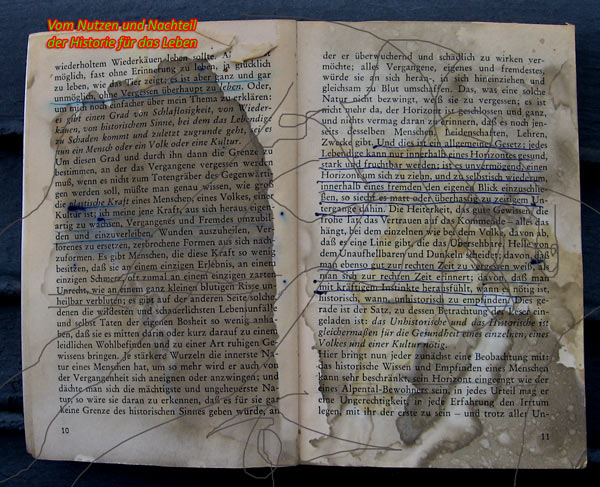 Vom Nutzen und Nachteil
der Historie für das Leben
wiederholtem Wiederkäuen leben sollte.
möglich, fast ohne Erinnerung zu leben, ja glücklich
zu leben, wie das Tier zeigt; es ist aber ganz und gar
unmöglich, ohne Vergessen überhaupt zu leben. Oder,
um mich noch einfacher über mein Thema zu erklären:
es gibt einen Grad von Schlaflosigkeit, von Wieder-
käuen, von historischem Sinne, bei dem das Lebendige
zu Schaden kommt und zuletzt zugrunde geht, sei es
nun ein Mensch oder ein Volk oder eine Kultur.
Um diesen Grad und durch ihn dann die Grenze zu
bestimmen, an der das Vergangene vergessen werden
muß, wenn es nicht zum Totengräber des Gegenwärti-
gen werden soll, müßte man genau wissen, wie groß
die plastische Kraft eines Menschen, eines Volkes, einer
Kultur ist; ich meine jene Kraft, aus sich heraus eigen-
artig zu wachsen, Vergangenes und Fremdes umzubil-
den und einzuverleiben, Wunden auszuheilen, Ver-
lorenes zu ersetzen, zerbrochene Formen aus sich nach-
zuformen. Es gibt Menschen, die diese Kraft so wenig
besitzen, daß sie an einem einzigen Erlebnis, an einem
einzigen Schmerz, oft zumal an einem einzigen zarten
Unrecht, wie an einem ganz kleinen blutigen Risse un-
heilbar verbluten; es gibt auf der anderen Seite solche,
denen die wildesten und schauerlichsten Lebensunfälle
und selbst Taten der eigenen Bosheit so wenig anha-
ben, daß sie es mitten darin oder kurz darauf zu einem
leidlichen Wohlbefinden und zu einer Art ruhigen Ge-
wissens bringen. Je stärkere Wurzeln die innerste Na-
tur eines Menschen hat, um so mehr wird er auch von
der Vergangenheit sich aneignen oder anzwingen; und
dächte man sich die mächtigste und ungeheuerste Na-
tur, so wäre sie daran zu erkennen, daß es für sie gar
keine Grenze des historischen Sinnes geben würde, an
10
der er überwuchernd und schädlich zu wirken ver-
möchte; alles Vergangene, eigenes und fremdestes,
würde sie an sich heran-, in sich hineinziehen und
gleichsam zu Blut umschaffen. Das, was eine solche
Natur nicht bezwingt, weiß sie zu vergessen; es ist
nicht mehr da, der Horizont ist geschlossen und ganz,
und nichts vermag daran zu erinnern, daß es noch jen-
seits desselben Menschen, Leidenschaften, Lehren,
Zwecke gibt. Und dies ist ein allgemeines Gesetz: jedes
Lebendige kann nur innerhalb eines Horizontes gesund,
stark und fruchtbar werden; ist es unvermögend, einen
Horizont um sich zu ziehn, und zu selbstisch wiederum,
innerhalb eines fremden den eigenen Blick einzuschlie-
ßen, so siecht es matt oder überhastig zu zeitigem Un-
tergange dahin. Die Heiterkeit, das gute Gewissen, die
frohe Tat, das Vertrauen auf das Kommende – alles das
hängt, bei dem einzelnen wie bei dem Volke, davon ab,
daß es eine Linie gibt, die das Übersehbare, Helle von
dem Unaufhellbaren und Dunkeln scheidet; davon, daß
man ebenso gut zur rechten Zeit zu vergessen weiß, als
man sich zur rechten Zeit erinnert; davon, daß man
mit kräftigem Instinkte herausfühlt, wann es nötig ist,
historisch, wann, unhistorisch zu empfinden. Dies ge-
rade ist der Satz, zu dessen Betrachtung der Leser ein-
geladen ist: das Unhistorische und das Historische ist
gleichermaßen für die Gesundheit eines einzelnen, eines
Volkes und einer Kultur nötig.
Hier bringt nun jeder zunächst eine Beobachtung mit:
das historische Wissen und Empfinden eines Menschen
kann sehr beschränkt, sein Horizont eingeengt wie der
eines Alpental-Bewohners sein, in jedes Urteil mag er
eine Ungerechtigkeit, in jede Erfahrung den Irrtum
legen, mit ihr der erste zu sein – und trotz aller Un-
11